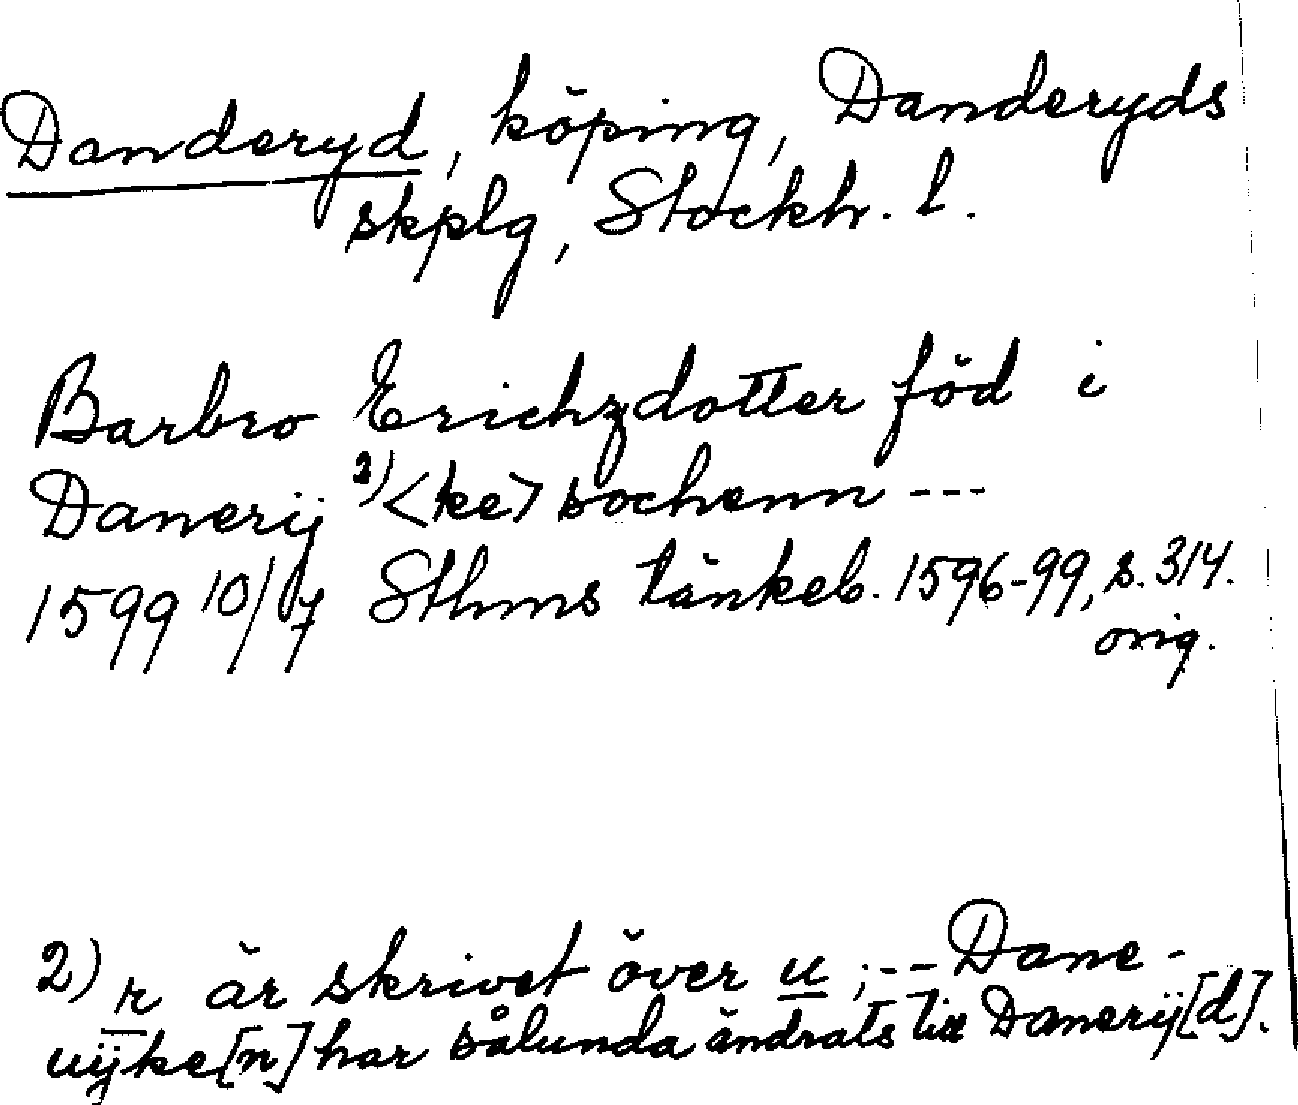 Danderyd, köping, Danderyds
skplg, Stockh. l.
Barbro Erichzdotter föd i
Danerij 2)<ke> sochenn ---
1599 10/7 Sthms tänkeb. 1596-99, s. 314.
orig.
2) r är skrivet över u; -- Dane-
uÿke[n] har sålunda ändrats till Danerÿ[d].